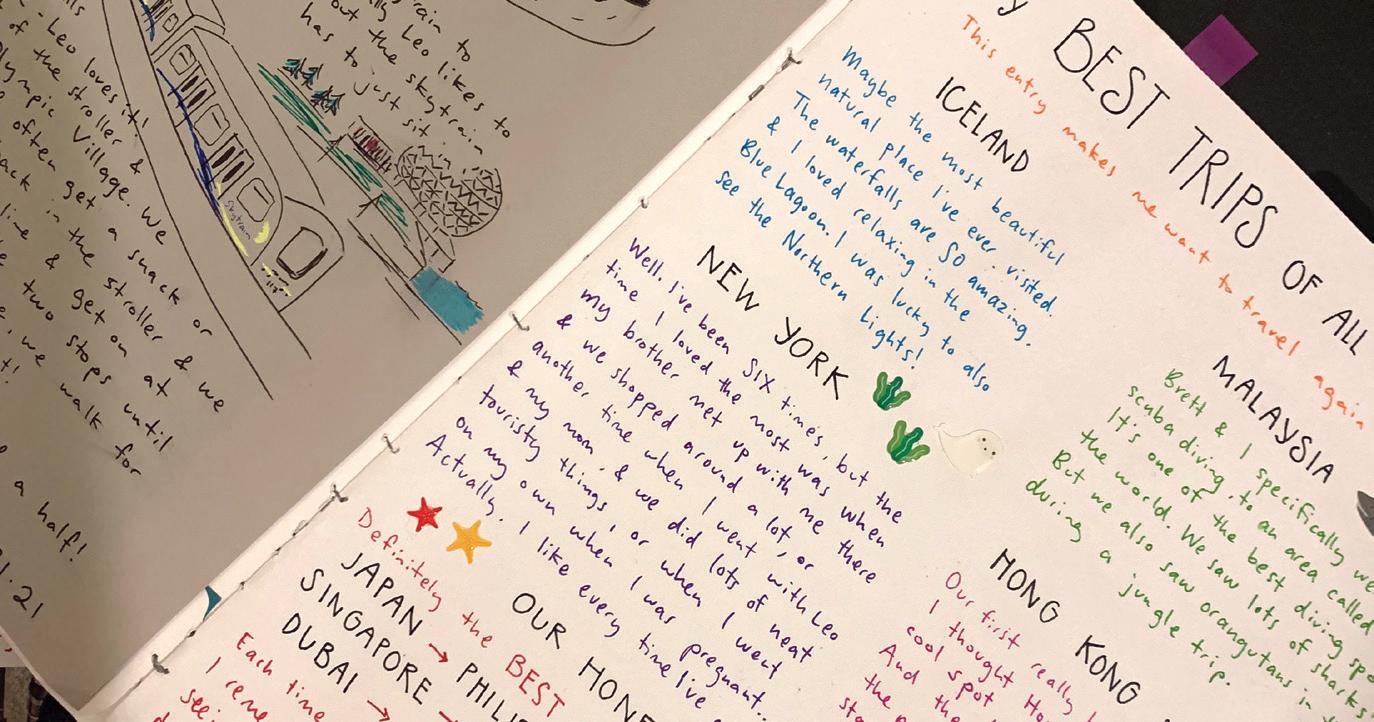 Leo loves it!
of the stroller &
Village. We
often get a snack or
in the stroller & we
& get on at
two stops until
we walk for
a half!
21
to
Leo likes to
out the skytrain
has to just sit
Skytrain
BEST TRIPS OF ALL
This entry makes me want to travel again
ICELAND
Maybe the most beautiful
natural place I've ever visited.
The waterfalls are SO amazing.
& I loved relaxing in the
Blue Lagoon. I was lucky to also
see the Northern Lights!
NEW YORK
Well, I've been SIX times, but the
time I loved the most was when
my brother met up with me there
& we shopped around a lot, or
another time when I went with Leo
& my mom, & we did lots of neat
touristy things, or when I went
on my own when I was pregnant..
Actually, I like every time I've
OUR HONE
Definitely the BEST
JAPAN → PHILI
SINGAPORE →
DUBAI →
Each time
I reme
MALAYSIA
Brett & I specifically we
scuba diving, to an area called
It's one of the best diving spo
the world. We saw lots of sharks.
But we also saw orangutans in
during a jungle trip.
HONG KONG
Our first really
I thought Ho
cool spot
And the
the